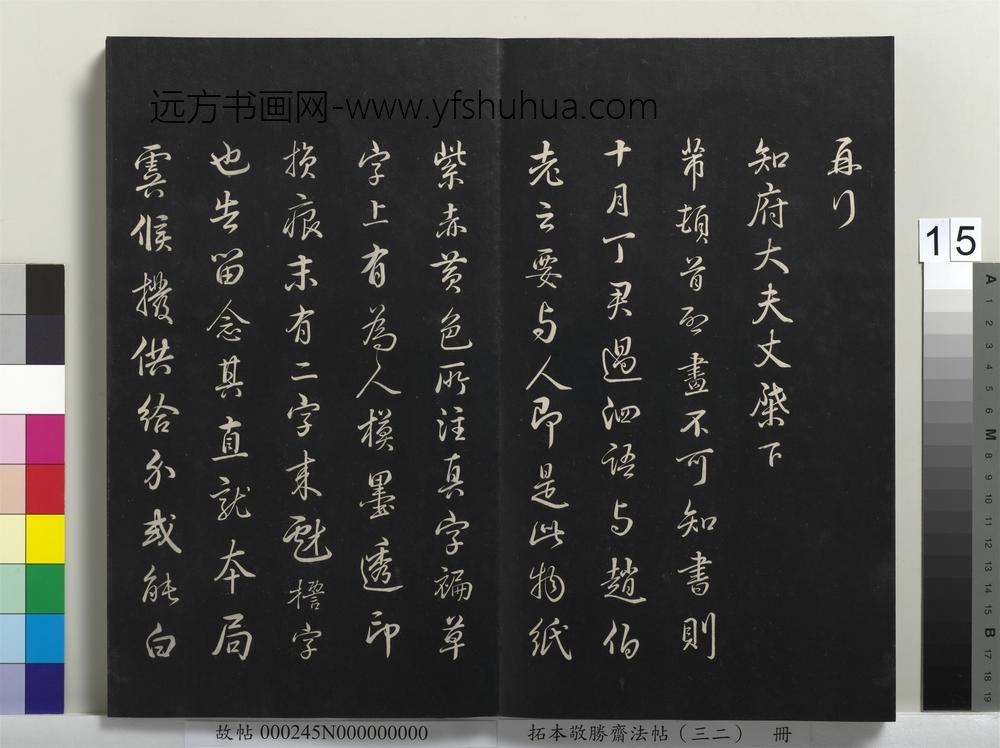 远方书画网-www.yfshuhua.com
再行
知府大夫丈棐下
芾頓首啓畫不可知書則
十月丁君過泗語与趙伯
老云要与人即是此物紙
紫赤黃色所注真字褊草
字上有為人模墨透印
損痕末有二字来戲字
也告留念其直就本局
虞候撥供給尔或能白
15
A 1 2 3 4 5 6 M 8 9 10 11 12 13 14 15 B 17 18 19
故帖 000245N000000000
拓本敬勝齋法帖（三二） 冊